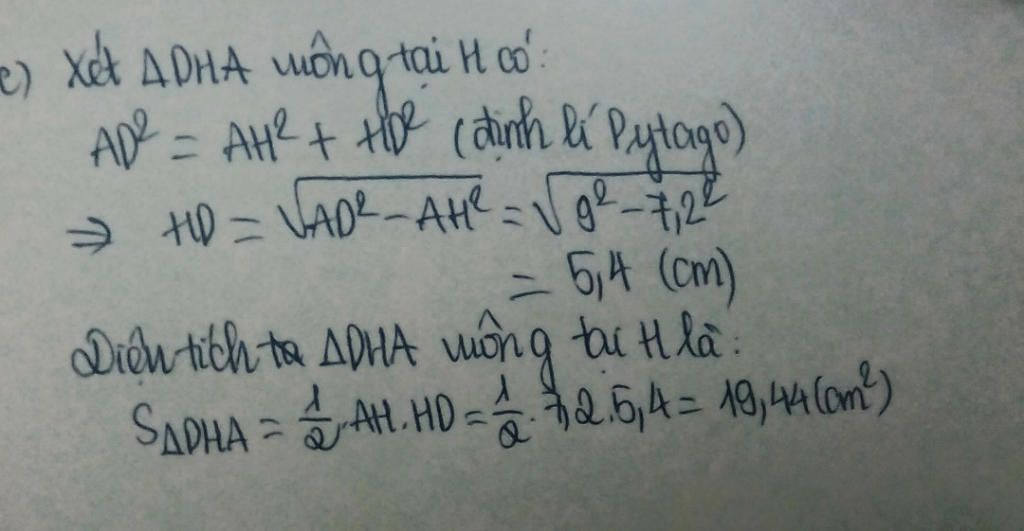 c) Xét ΔDHA vuông tại H có:
AD² = AH² + HD² (định lí Pytago)
⇒ HD = √AD² - AH² = √9² - 7,2²
= 5,4 (cm)
Diện tích ta ΔDHA vuông tại H là:
S ΔDHA = 1/2 . AH . HD = 1/2 . 7,2 . 5,4 = 19,44 (cm²)